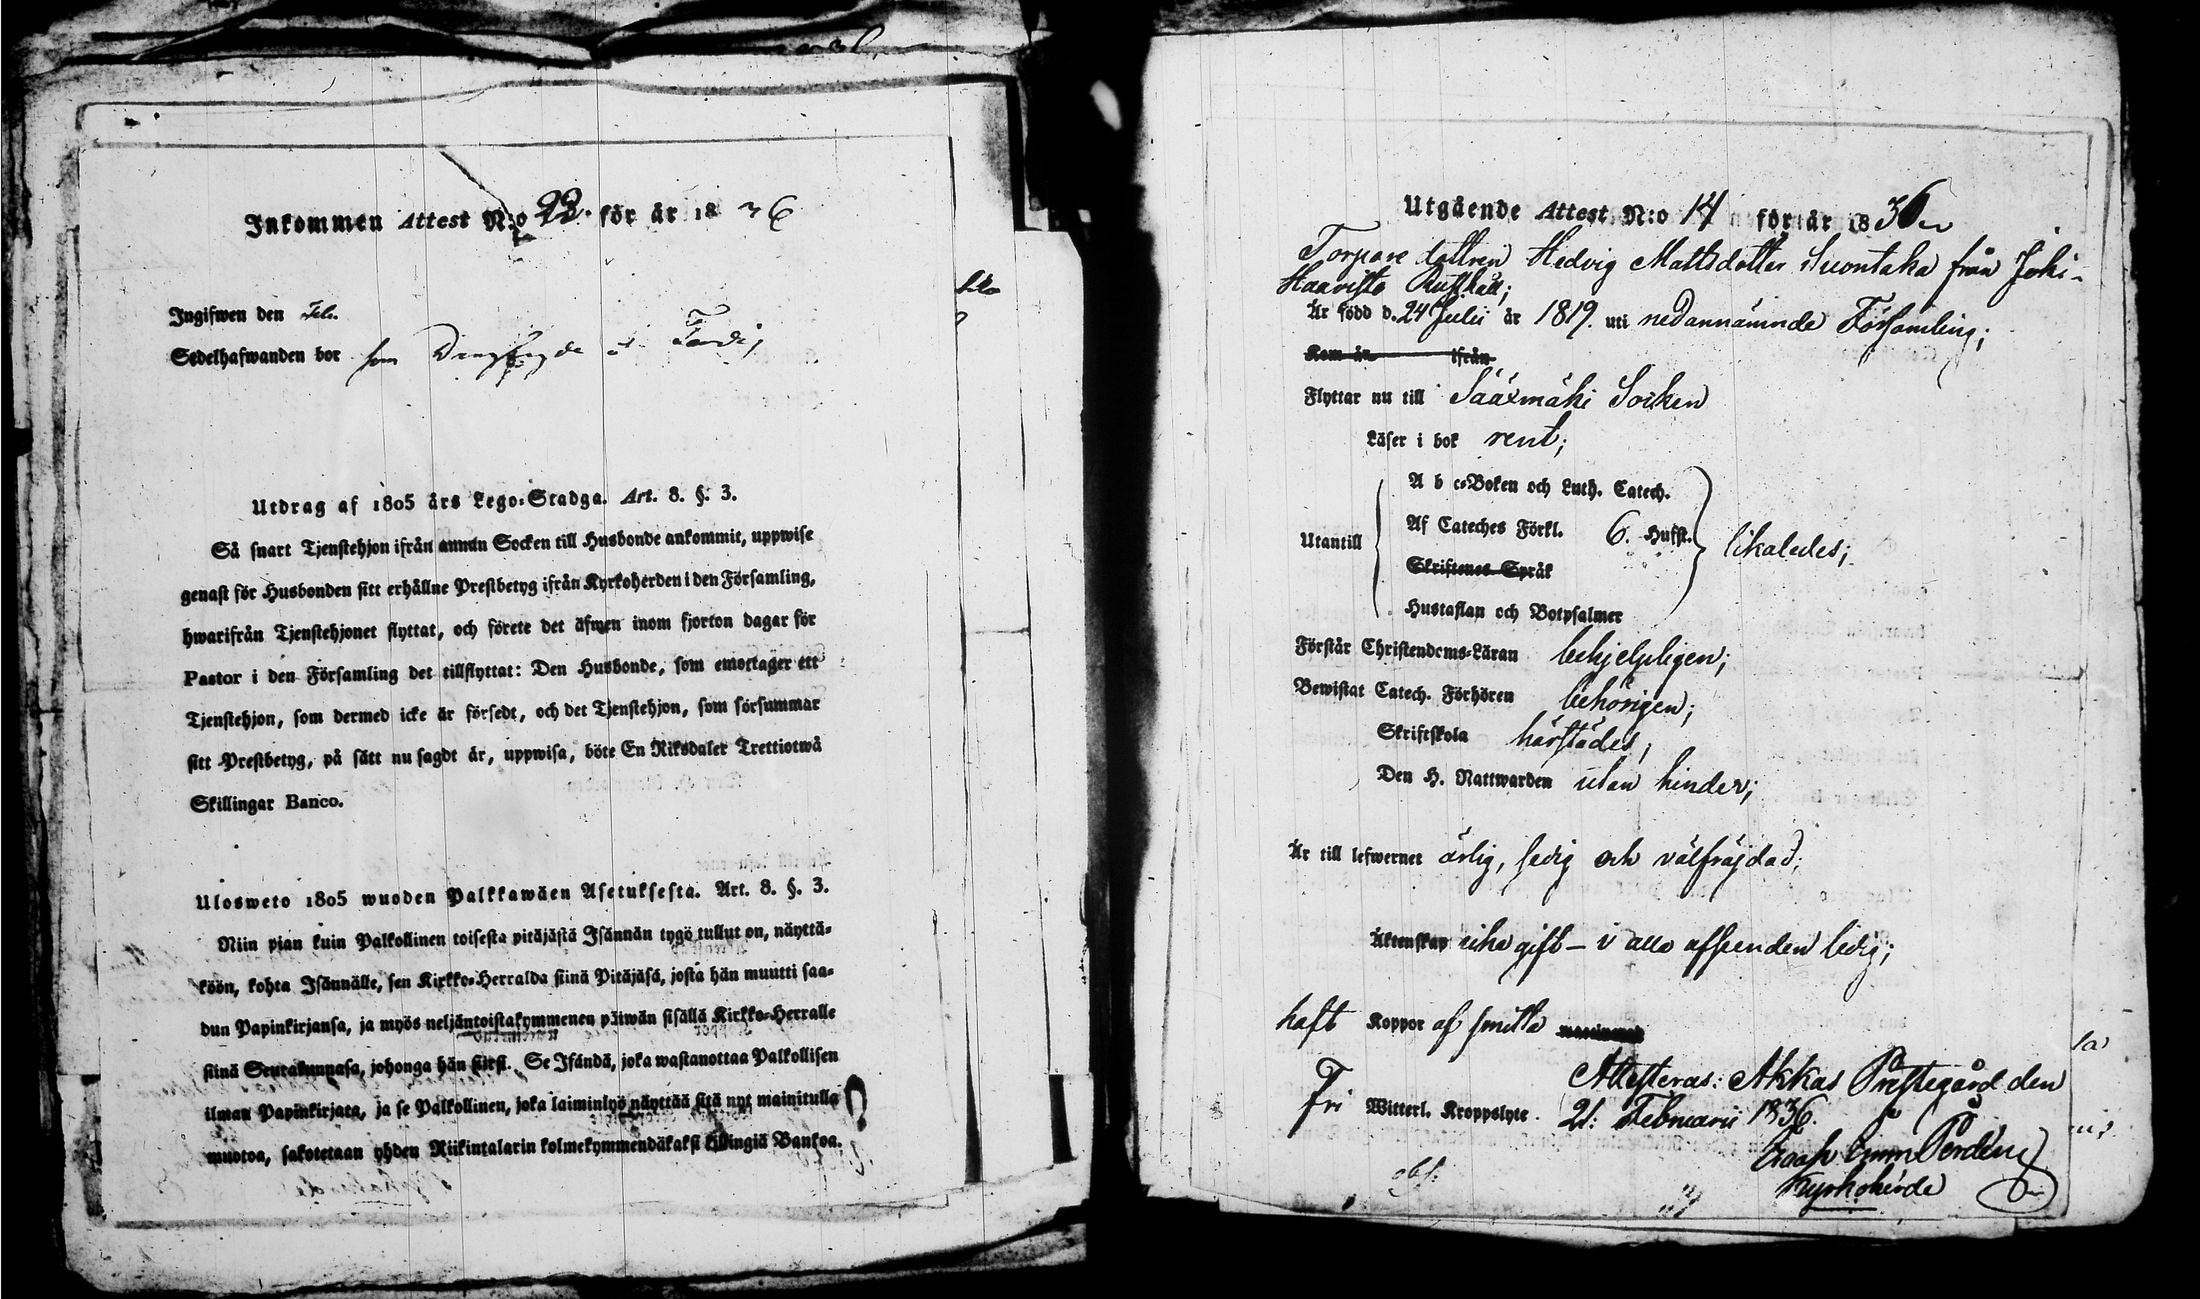 Inkommen Attest N:o 22. för år 1836
Ingifwen den Feb.
Sedelhafwanden bor som
Utdrag af 1805 års Lego-Stadga. Art. 8. §. 3.
Så snart Tjenstehjon ifrån annan Socken till Husbonde ankommit, uppwise
genast för Husbonden sitt erhållne Prestbetyg ifrån Kyrkoherden i den Församling,
hwarifrån Tjenstehjonet flyttat, och förete det äfwen inom fjorton dagar för
Pastor i den Församling det tillflyttat: Den Husbonde, som emottager ett
Tjenstehjon, som dermed icke är försedt, och det Tjenstehjon, som försummar
sitt Prestbetyg, på sätt nu sagdt är, uppwisa, böte En Riksdaler Trettiotwå
Skillingar Banco.
Ulosweto 1805 wuoden Palkkawäen Asetuksesta. Art. 8. §. 3.
Niin pian kuin Palkollinen toisesta pitäjästä Isännän tygö tullut on, näyttä-
köön, kohta Isännälle, sen Kirkko-Herralda siinä Pitäjäsä, josta hän muutti saa-
dun Papinkirjansa, ja myös neljäntoistakymmenen päiwän sisällä Kirkko-Herralle
siinä Seurakunnasa, johonga hän siirsi. Se Isändä, joka wastanottaa Palkollisen
ilman Papinkirjata, ja se Palkollinen, joka laiminlyö näyttää sitä nyt mainitulla
muotoa, sakotetaan yhden Riikintalarin kolmekymmendäkaksi killingiä Bankoa.
Utgående Attest N:o 14 för år 1836
Torpare dottren Hedvig Mattsdotter Suontaka från Joki-
Haavisto Rusthåll;
Är född d. 24 Julii år 1819. uti nedannämnde Församling;
Kom år ifrån
Flyttar nu till Sääxmäki Socken
Läser i bok rent;
A b c-Boken och Luth. Catech.
Af Cateches Förkl. 6. Hufst.
Utantill likaledes;
Skriftenes Språk
Hustaflan och Botpsalmer
Förstår Christendoms-Läran behjelpligen;
Bewistat Catech. Förhören behörigen;
Skriftskola härstädes;
Den H. Nattwarden utan hinder;
Är till lefwernet ärlig, sedig och välfräjdad;
Äktenskap icke gift – i alla afseenden ledig;
haft Koppor af smitta
Attesteras: Akkas Prestegård den
Fri Witterl. Kroppslyte. 21. Februarii 1836.
Kyrkoherde